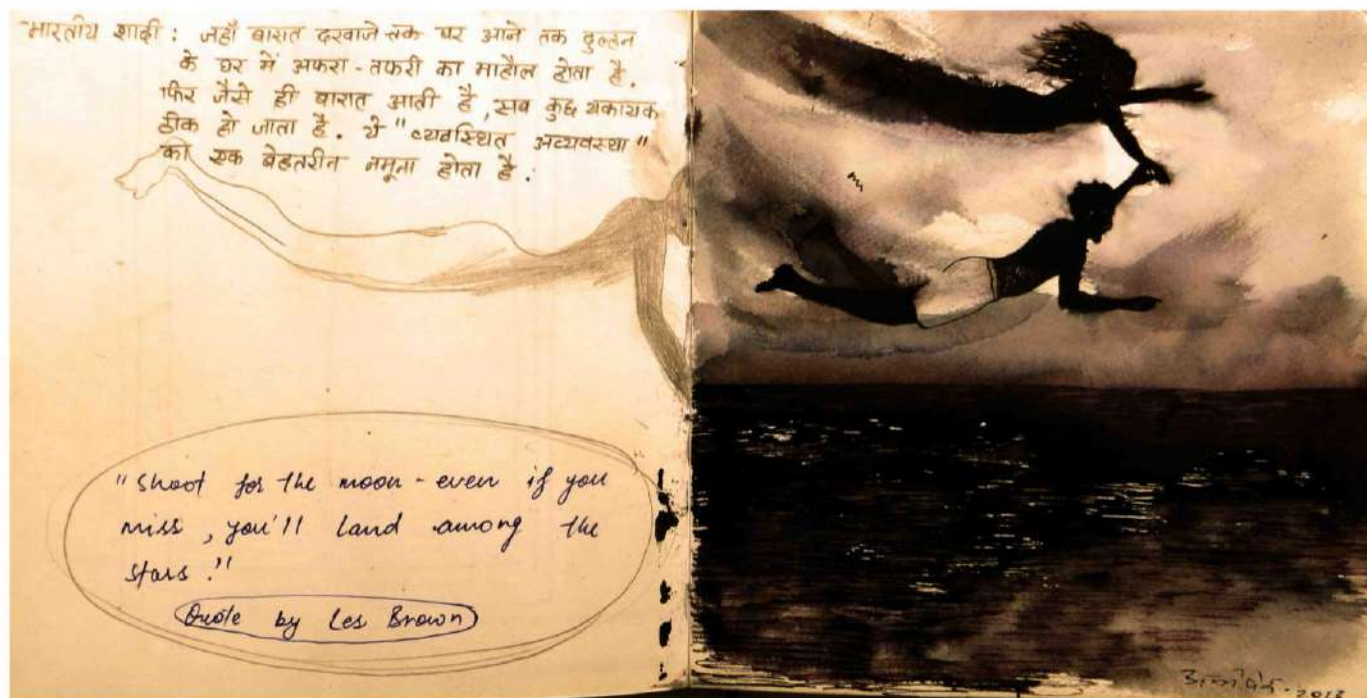 भारतीय शादी : जहाँ बारात दरवाजे तक पर आने तक दुल्हन
के घर में अफरा-तफरी का माहौल होता है.
फिर जैसे ही बारात आती है, सब कुछ यकायक
ठीक हो जाता है. ये "व्यवस्थित अव्यवस्था"
का एक बेहतरीन नमूना होता है.
"Shoot for the moon - even if you
miss, you'll land among the
stars."
Quote by Les Brown
2013